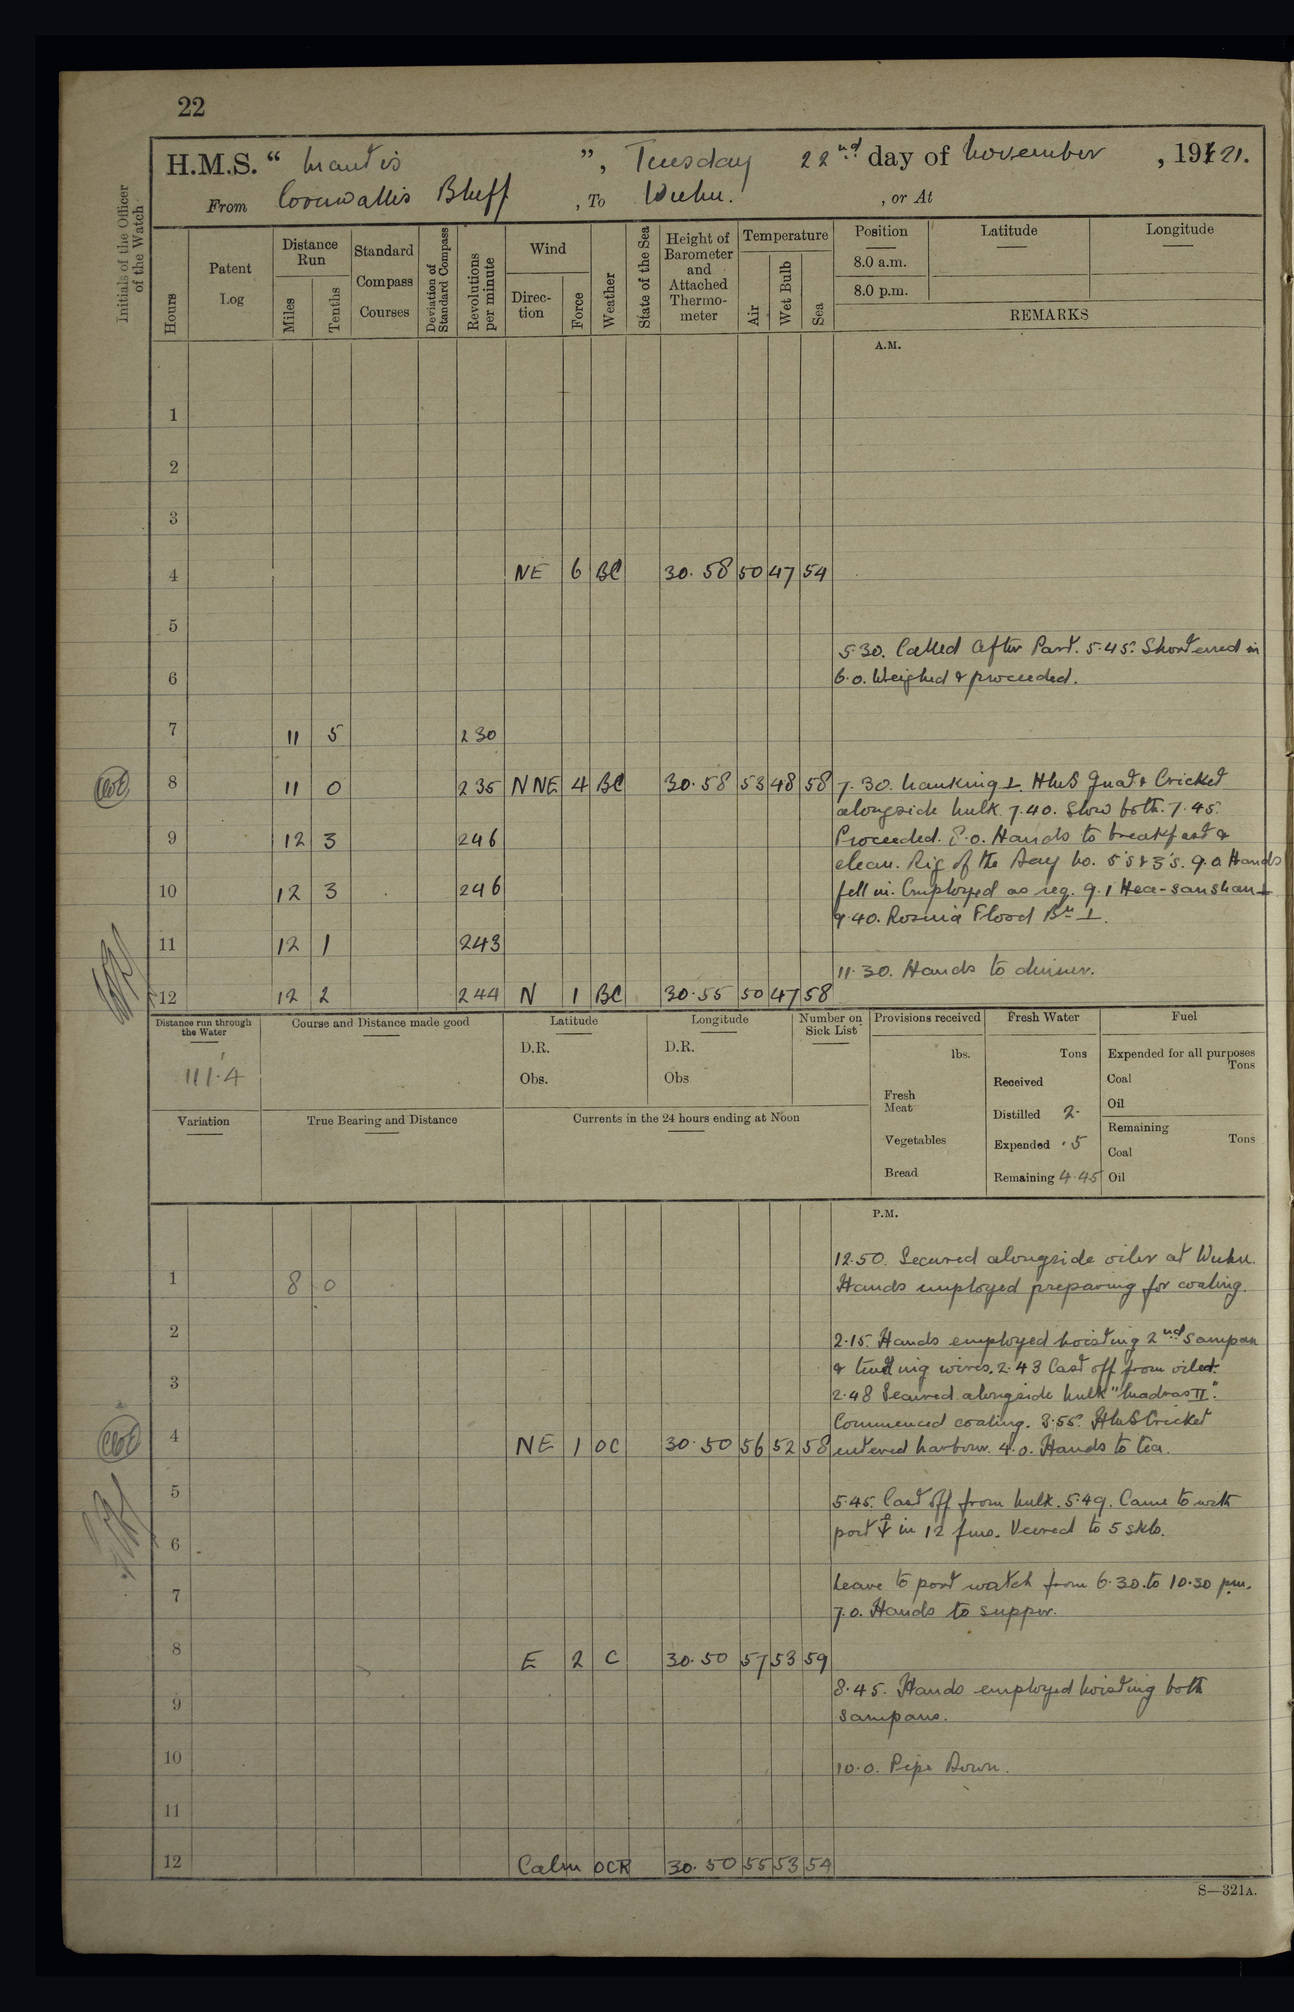 22
H.M.S. “ Mantis ”, Tuesday 22nd day of November, 191 21.
From Cornwallis Bluff, To Wuhu. , or At
Initials of the Officer of the Watch
Hours
Patent Log
Distance Run
Miles
Tenths
Standard Compass Courses
Deviation of Standard Compass
Revolutions per minute
Wind
Direction
Force
Weather
State of the Sea
Height of Barometer and Attached Thermometer
Temperature
Air
Wet Bulb
Sea
Position
8.0 a.m.
8.0 p.m.
Latitude
Longitude
REMARKS
A.M.
1
2
3
4 NE 6 BC 30.58 50 47 54
5
5.30. Called After Part. 5.45. Shortened in
6
6.0. Weighed & proceeded.
7 11 5 230
8 11 0 235 NNE 4 BC 30.58 53 48 58
7.30. Nanking ⊥ HMS Gnat & Cricket
alongside hulk. 7.40. Slow both. 7.45.
9 12 3 246
Proceeded. 8.0. Hands to breakfast &
clean. Rig of the Day No. 5's & 3's. 9.0 Hands
10 12 3 246
fell in. Employed as req. 9.1 Hea-san shan ⊥
9.40. Rosina Flood Bn ⊥.
11 12 1 243
11.30. Hands to dinner.
12 12 2 244 N 1 BC 30.55 50 47 58
Distance run through the Water
111.4
Course and Distance made good
Latitude
D.R.
Obs.
Longitude
D.R.
Obs
Number on Sick List
Provisions received
lbs.
Fresh Meat
Vegetables
Bread
Fresh Water
Tons
Received
Distilled 2.
Expended .5
Remaining 4.45
Fuel
Expended for all purposes
Tons
Coal
Oil
Remaining
Tons
Coal
Oil
Variation
True Bearing and Distance
Currents in the 24 hours ending at Noon
P.M.
12.50. Secured alongside oiler at Wuhu.
1 8 0
Hands employed preparing for coaling.
2
2.15. Hands employed hoisting 2nd sampan
& tending wires. 2.43 Cast off from oiler.
3
2.48 Secured alongside hulk "Madras II".
Commenced coaling. 3.55. HMS Cricket
4 NE 1 OC 30.50 56 52 58
entered harbour. 4.0. Hands to tea.
5
5.45. Cast off from hulk. 5.49. Came to with
port ⚓ in 12 fms. Veered to 5 skls.
6
Leave to port watch from 6.30. to 10.30 pm.
7
7.0. Hands to supper.
8 E 2 C 30.50 57 53 59
8.45. Hands employed hoisting both
9
sampans.
10
10.0. Pipe Down.
11
12 Calm OCR 30.50 55 53 54
S—321A.